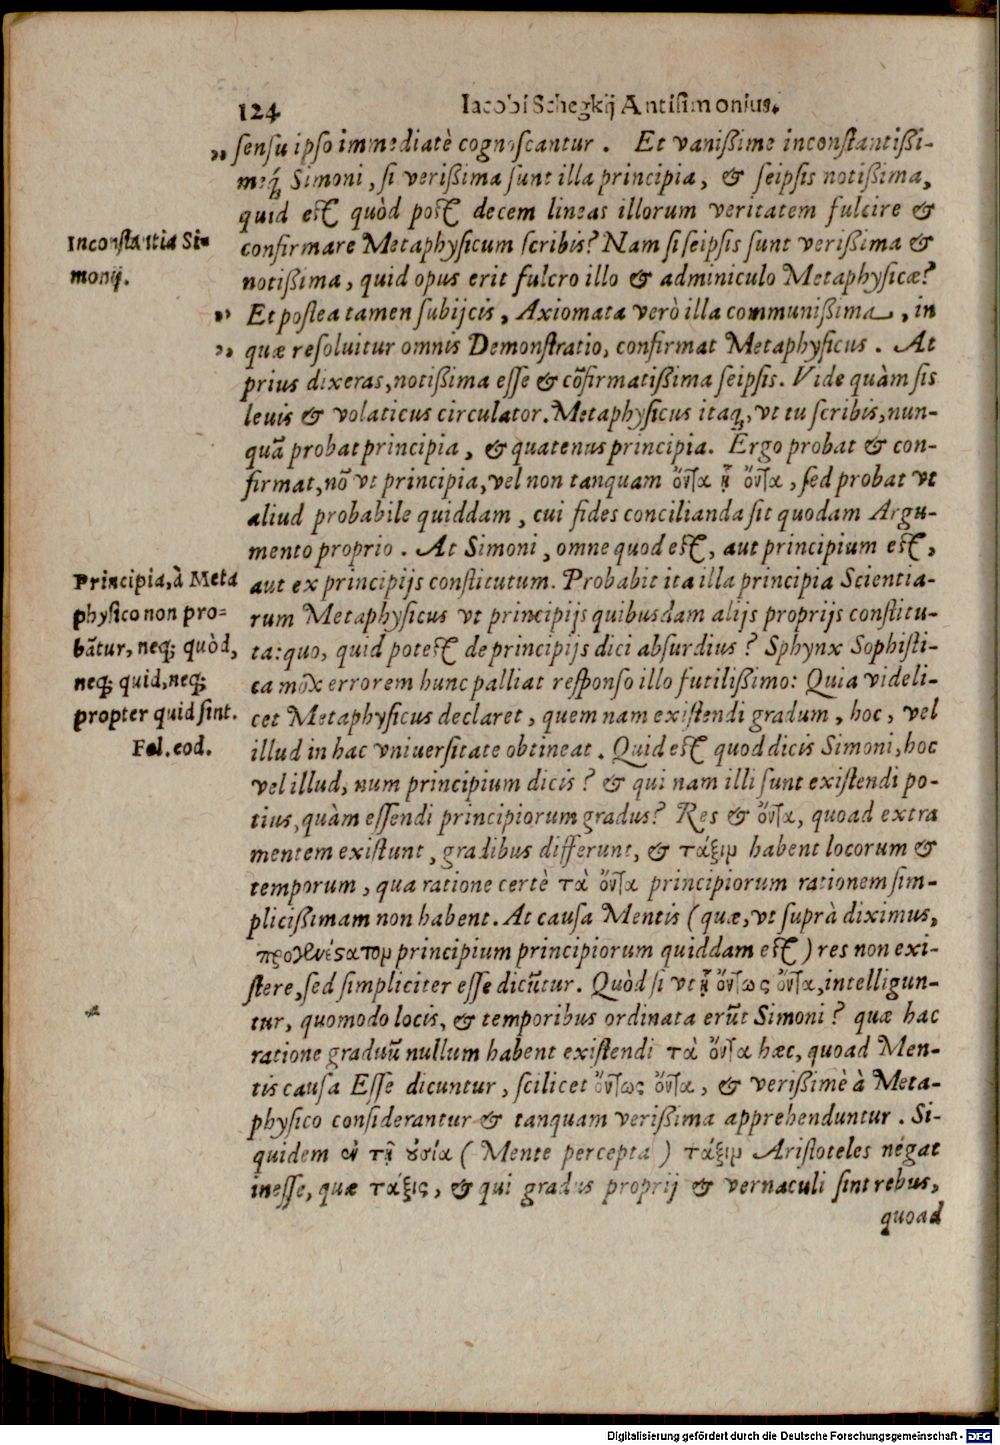 124 Iacobi Schegkij Antisimonius.
„ sensu ipso immediatè cognoscantur. Et vanißime inconstantißi-
meq́; Simoni, si verißima sunt illa principia, & seipsis notißima,
quid est quòd post decem lineas illorum veritatem fulcire &
Inconstantia Si-
monij.
confirmare Metaphysicum scribis? Nam si seipsis sunt verißima &
notißima, quid opus erit fulcro illo & adminiculo Metaphysicæ?
„ Et postea tamen subijcis, Axiomata verò illa communißima, in
„ quæ resoluitur omnis Demonstratio, confirmat Metaphysicus. At
prius dixeras, notißima esse & cõfirmatißima seipsis. Vide quàm sis
leuis & volaticus circulator. Metaphysicus itaq;, vt tu scribis, nun-
quã probat principia, & quatenus principia. Ergo probat & con-
firmat, nõ vt principia, vel non tanquam ὄντα ᾗ ὄντα, sed probat vt
aliud probabile quiddam, cui fides concilianda sit quodam Argu-
mento proprio. At Simoni, omne quod est, aut principium est,
Principia, à Meta
physico non pro-
bãtur, neq; quòd,
neq; quid, neq;
propter quid sint.
Fol. eod.
aut ex principijs constitutum. Probabit ita illa principia Scientia-
rum Metaphysicus vt principijs quibusdam alijs proprijs constitu-
ta: quo, quid potest de principijs dici absurdius? Sphynx Sophisti-
ca mox errorem hunc palliat responso illo futilißimo: Quia videli-
cet Metaphysicus declaret, quem nam existendi gradum, hoc, vel
illud in hac vniuersitate obtineat. Quid est quod dicis Simoni, hoc
vel illud, num principium dicis? & qui nam illi sunt existendi po-
tius, quàm essendi principiorum gradus? Res & ὄντα, quoad extra
mentem existunt, gradibus differunt, & τάξιμ habent locorum &
temporum, qua ratione certè τὰ ὄντα principiorum rationem sim-
plicißimam non habent. At causa Mentis (quæ, vt suprà diximus,
προγενέσατομ principium principiorum quiddam est) res non exi-
stere, sed simpliciter esse dicũtur. Quòd si vt ᾗ ὄντως ὄντα, intelligun-
tur, quomodo locis, & temporibus ordinata erũt Simoni? quæ hac
ratione graduũ nullum habent existendi τὰ ὄντα hæc, quoad Men-
tis causa Esse dicuntur, scilicet ὄντως ὄντα, & verißimè à Meta-
physico considerantur & tanquam verißima apprehenduntur. Si-
quidem ἐν τῇ οὐσίᾳ (Mente percepta) τάξιμ Aristoteles negat
inesse, quæ τάξις, & qui gradus proprij & vernaculi sint rebus,
quoad
Digitalisierung gefördert durch die Deutsche Forschungsgemeinschaft - DFG